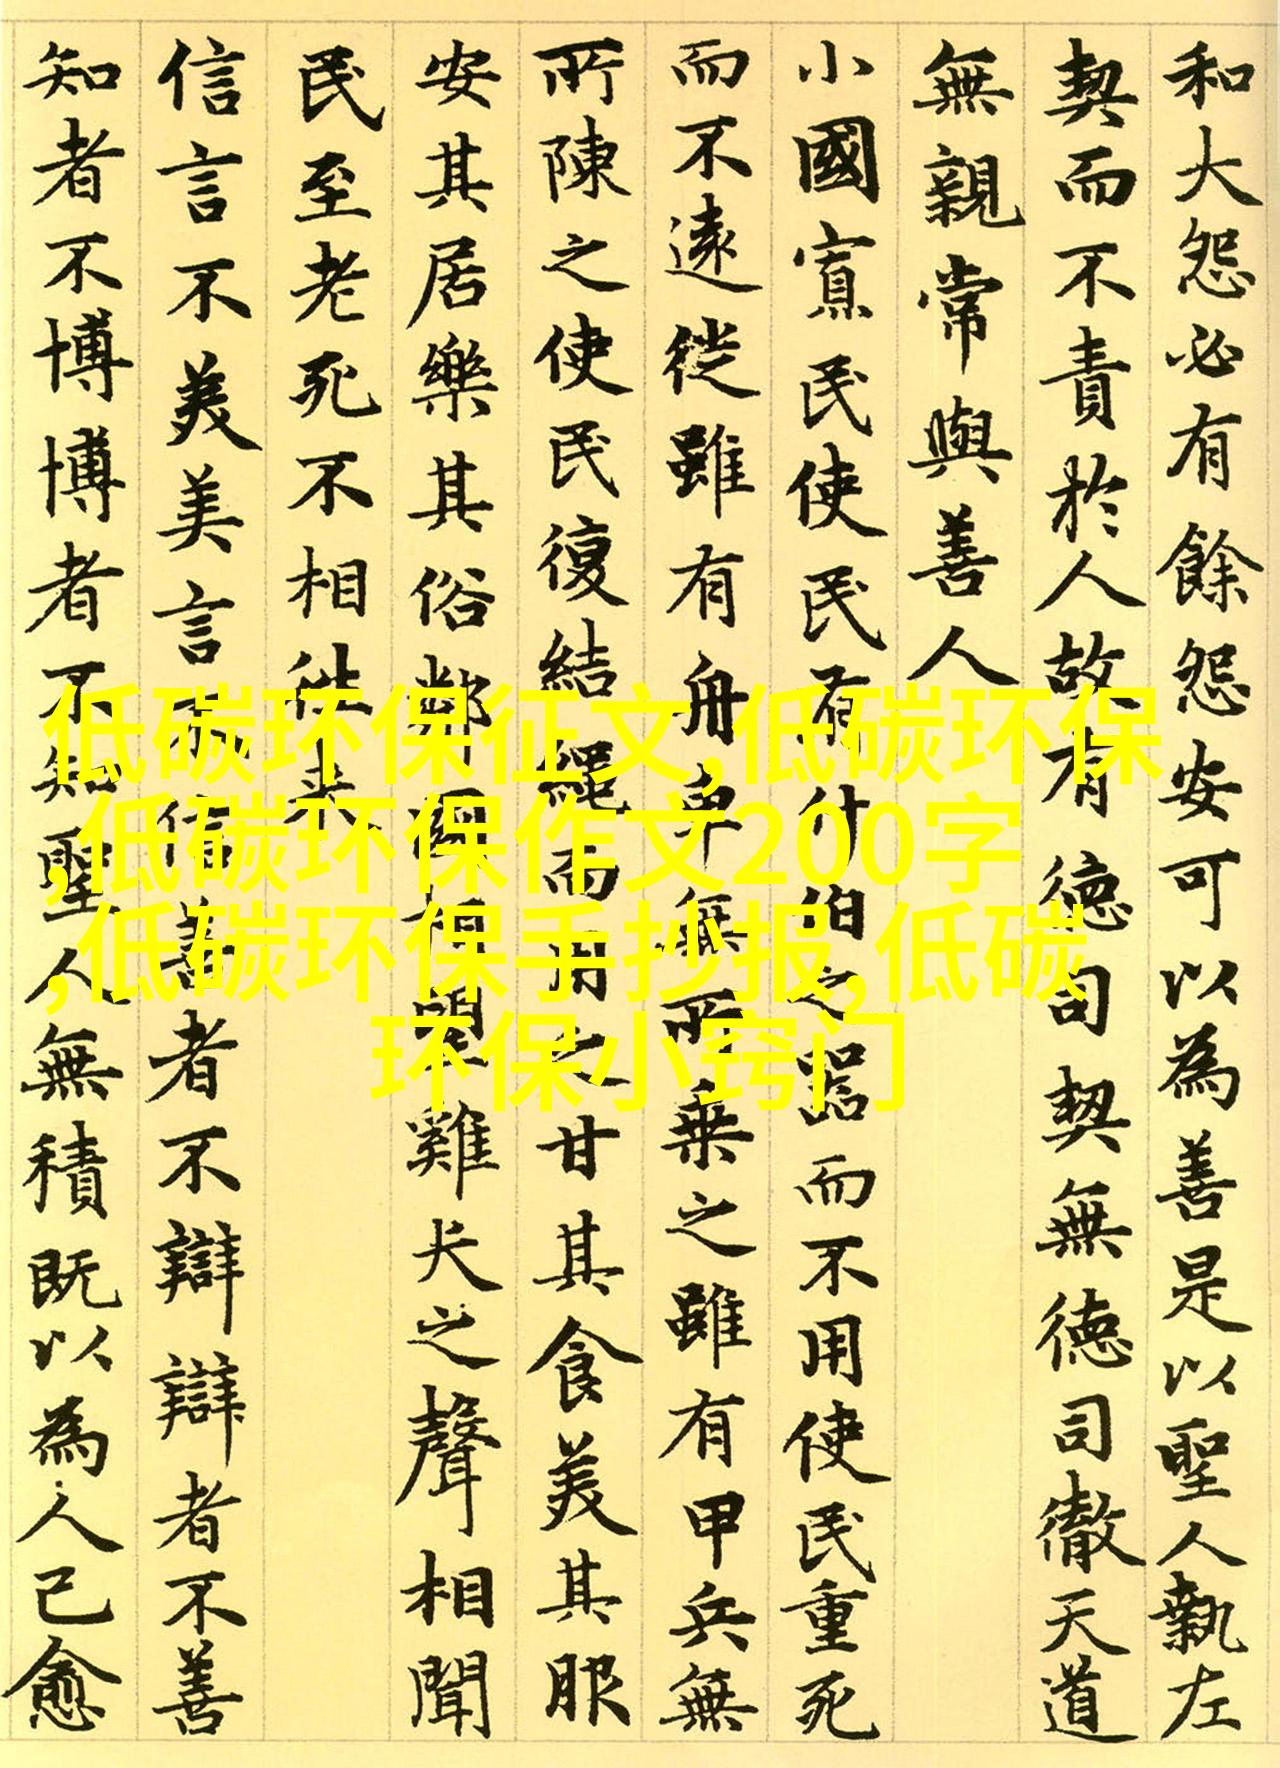 和大怨必有餘怨安可以為善是以聖人執左
契而不責於人故有德司契無德司徹天道
無親常與善人
小國寡民使民有什伯之器而不用使民重死
而不遠徙雖有舟車無所乗之雖有甲兵無
所陳之使民復結繩而用之甘其食美其服
安其居樂其俗鄰國相望雞犬之聲相聞
民至老死不相往来
信言不美美言不信善者不辯辯者不善
知者不博博者不知聖人無積既以為人己愈
低碳环保征文,低碳环保
,低碳环保作文200字
,低碳环保手抄报,低碳
环保小窍门